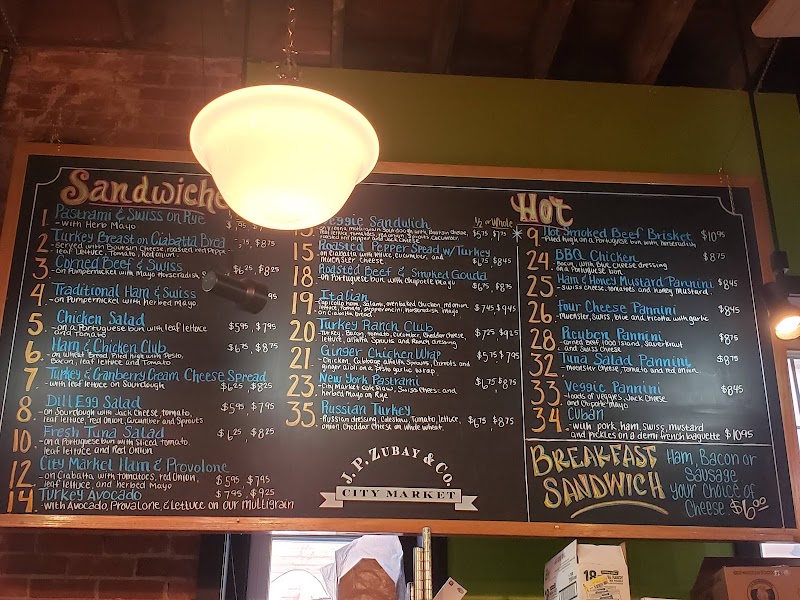 Sandwiche
1 Pastrami & Swiss on Rye
- with Herb Mayo
2. Turkey Breast on Ciabatta Brea
- served with Boursin Cheese, roasted red Pepp
leaf Lettuce, Tomato, Red onion $8.75
3. Corned Beef & Swiss
- on Pumpernickel with Mayo Horserad $6.25, $8.25
4. Traditional Ham & Swiss
- on Pumpernickel with herbed Mayo
5. Chicken Salad
- on a Portuguese bun with leaf lettuce $5.95, $7.95
and Tomato
6. Ham & Chicken Club $6.75, $8.75
- on wheat Bread, Piled high with Pesto,
Bacon, leaf lettuce and Tomato
7. Turkey & Cranberry Cream Cheese Spread
- with leaf lettuce on Sourdough $6.25, $8.25
8 Dill Egg Salad $5.95, $7.95
- on Sourdough with Jack Cheese, tomato,
leaf lettuce, red Onion, Cucumber and Sprouts
10 Fresh Tuna Salad $6.25, $8.25
- on a Portuguese bun with Sliced Tomato,
leaf lettuce and Red Onion
12 City Market Ham & Provolone
- on Ciabatta with tomatoes, red Onion, $5.95 $7.95
leaf lettuce, and herbed Mayo
14 Turkey Avocado $7.95, $9.25
- with Avocado, Provalone, & Lettuce on our Multigrain
1/2 or Whole
Veggie Sandwich
$5.75, $7.75
red pepper and Jack Cheese
15 Roasted Pepper Spead w/ Turkey
- on Ciabatta with lettuce, cucumber, and
Muenster Cheese $6.75 $8.45
18 Roasted Beef & Smoked Gouda
- on Portuguese bun, with Chipotle Mayo $6.75, $8.75
19 Italian
- Capicollo ham, Salami, oven baked Chicken, red onion $7.45 $9.45
on Ciabatta bread
20 Turkey Ranch Club $7.25 $9.25
- Turkey, Bacon, tomato, Cucumber, Cheddar cheese,
lettuce, alfalfa Sprouts and Ranch dressing
21 Ginger Chicken Wrap $5.75 $7.95
- Chicken, Cabbage, alfalfa Sprouts, Carrots and
ginger aioli on a Pesto garlic wrap
23 New York Pastrami
- City Market Cole Slaw, Swiss Cheese and $6.75 $8.75
herbed Mayo on Rye
35 Russian Turkey
- Russian dressing, Coleslaw, Tomato, lettuce, $6.75 $8.75
onion, Cheddar Cheese on Whole wheat.
J.P. ZUBAY & CO.
CITY MARKET
Hot
9 Hot Smoked Beef Brisket $10.95
- Piled high on a Portuguese bun with horseradish
24 BBQ Chicken $8.75
- Bacon, with Blue Cheese dressing
on a Portuguese bun
25 Ham & Honey Mustard Pannini $8.45
- Swiss cheese, tomatoes and honey mustard
26 Four Cheese Pannini $8.45
- Muenster, Swiss, blue and ricotta with garlic
28 Rueben Pannini $8.75
- Corned Beef, 1000 island, Sauerkraut
and Swiss Cheese
32 Tuna Salad Pannini $9.75
- Muenster Cheese, Tomato and red onion
33 Veggie Pannini $8.45
- Loads of veggies, Jack Cheese
and Chipotle Mayo
34 Cuban
- with pork, ham, Swiss, mustard
and pickles on a demi french baguette $10.95
BREAKFAST
SANDWICH
Ham, Bacon or
Sausage
your choice of
Cheese $6.00
18